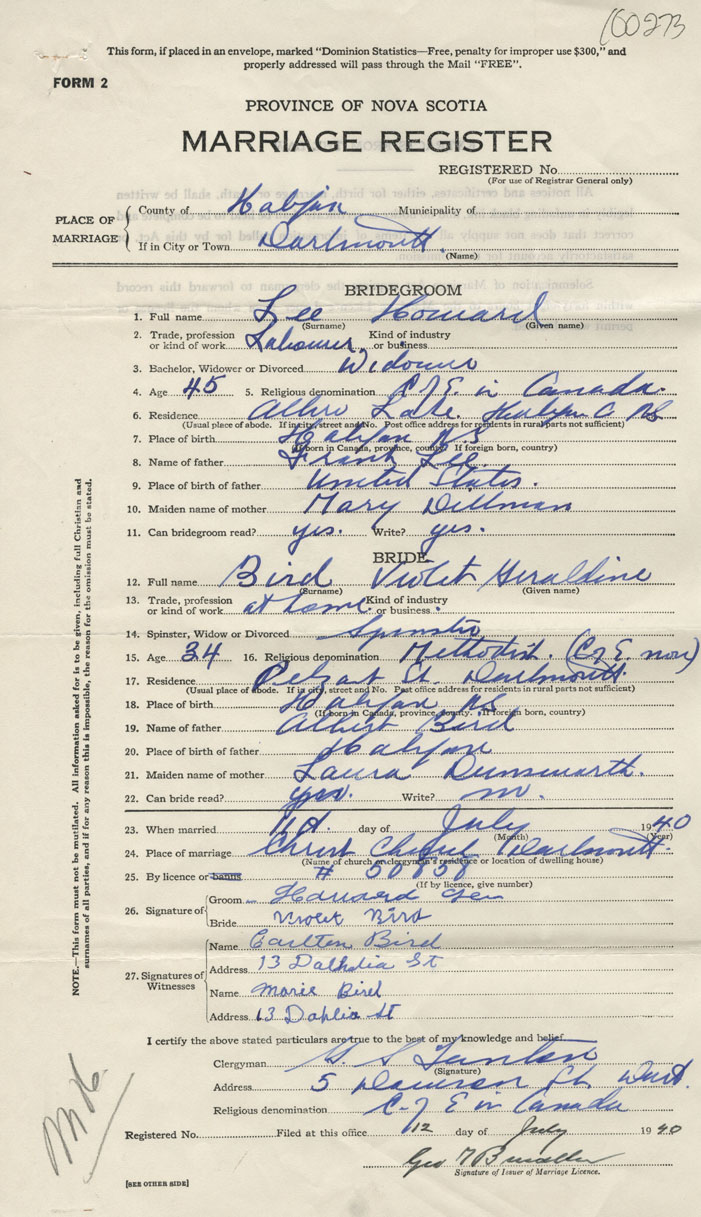 (60273
This form, if placed in an envelope, marked "Dominion Statistics—Free, penalty for improper use $300," and
properly addressed will pass through the Mail "FREE".
FORM 2
PROVINCE OF NOVA SCOTIA
MARRIAGE REGISTER
REGISTERED No.
(For use of Registrar General only)
PLACE OF MARRIAGE
County of Halifax Municipality of
If in City or Town Dartmouth.
(Name)
BRIDEGROOM
1. Full name Lee Howard
(Surname) (Given name)
2. Trade, profession or kind of work Labourer Kind of industry or business
3. Bachelor, Widower or Divorced Widower
4. Age 45 5. Religious denomination C of E in Canada.
6. Residence Albro Lake Halifax C NS
(Usual place of abode. If in city, street and No. Post office address for residents in rural parts not sufficient)
7. Place of birth Halifax N.S
(If born in Canada, province, county? If foreign born, country)
8. Name of father Frank Lee
9. Place of birth of father United States.
10. Maiden name of mother Mary Dillman
11. Can bridegroom read? yes. Write? yes.
BRIDE
12. Full name Bird Violet Geraldine
(Surname) (Given name)
13. Trade, profession or kind of work at home. Kind of industry or business
14. Spinster, Widow or Divorced Spinster
15. Age 34 16. Religious denomination Methodist. (C of E now)
17. Residence St. Dartmouth.
(Usual place of abode. If in city, street and No. Post office address for residents in rural parts not sufficient)
18. Place of birth Halifax NS
(If born in Canada, province, county. If foreign born, country)
19. Name of father Albert Bird
20. Place of birth of father Halifax
21. Maiden name of mother Laura Dunsworth.
22. Can bride read? yes. Write?
23. When married day of July 1940
(Month) (Year)
24. Place of marriage Christ Church Dartmouth.
(Name of church or clergyman's residence or location of dwelling house)
25. By licence or banns # 50858
(If by licence, give number)
26. Signature of
Groom Howard Lee
Bride Violet Bird
27. Signatures of Witnesses
Name Carlten Bird
Address 13 Dalhdia St
Name Marie Bird
Address 13 Dahlia St
I certify the above stated particulars are true to the best of my knowledge and belief.
Clergyman
(Signature)
Address 5 Dawson St. Dart.
Religious denomination C of E in Canada
Registered No. Filed at this office 12 day of July 1940
Geo
Signature of Issuer of Marriage Licence.
[SEE OTHER SIDE]
NOTE.—This form must not be mutilated. All information asked for is to be given, including full Christian and
surnames of all parties, and if for any reason this is impossible, the reason for the omission must be stated.